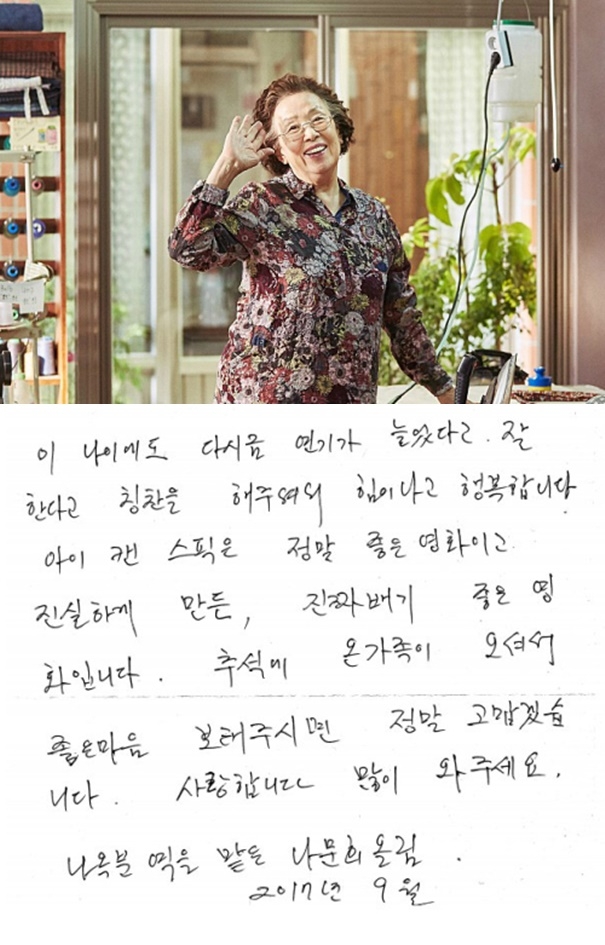 이 나이에도 다시금 연기가 늘었다고. 잘
한다고 칭찬을 해주셔서 힘이나고 행복합니다
아이 캔 스픽은 정말 좋은 영화이고
진실하게 만든, 진짜배기 좋은 영
화입니다. 추석에 온가족이 오셔서
좋은마음 보태주시면 정말 고맙겠습
니다. 사랑합니다 많이 와주세요.
나옥분 역을 맡은 나문희올림.
2017년 9월